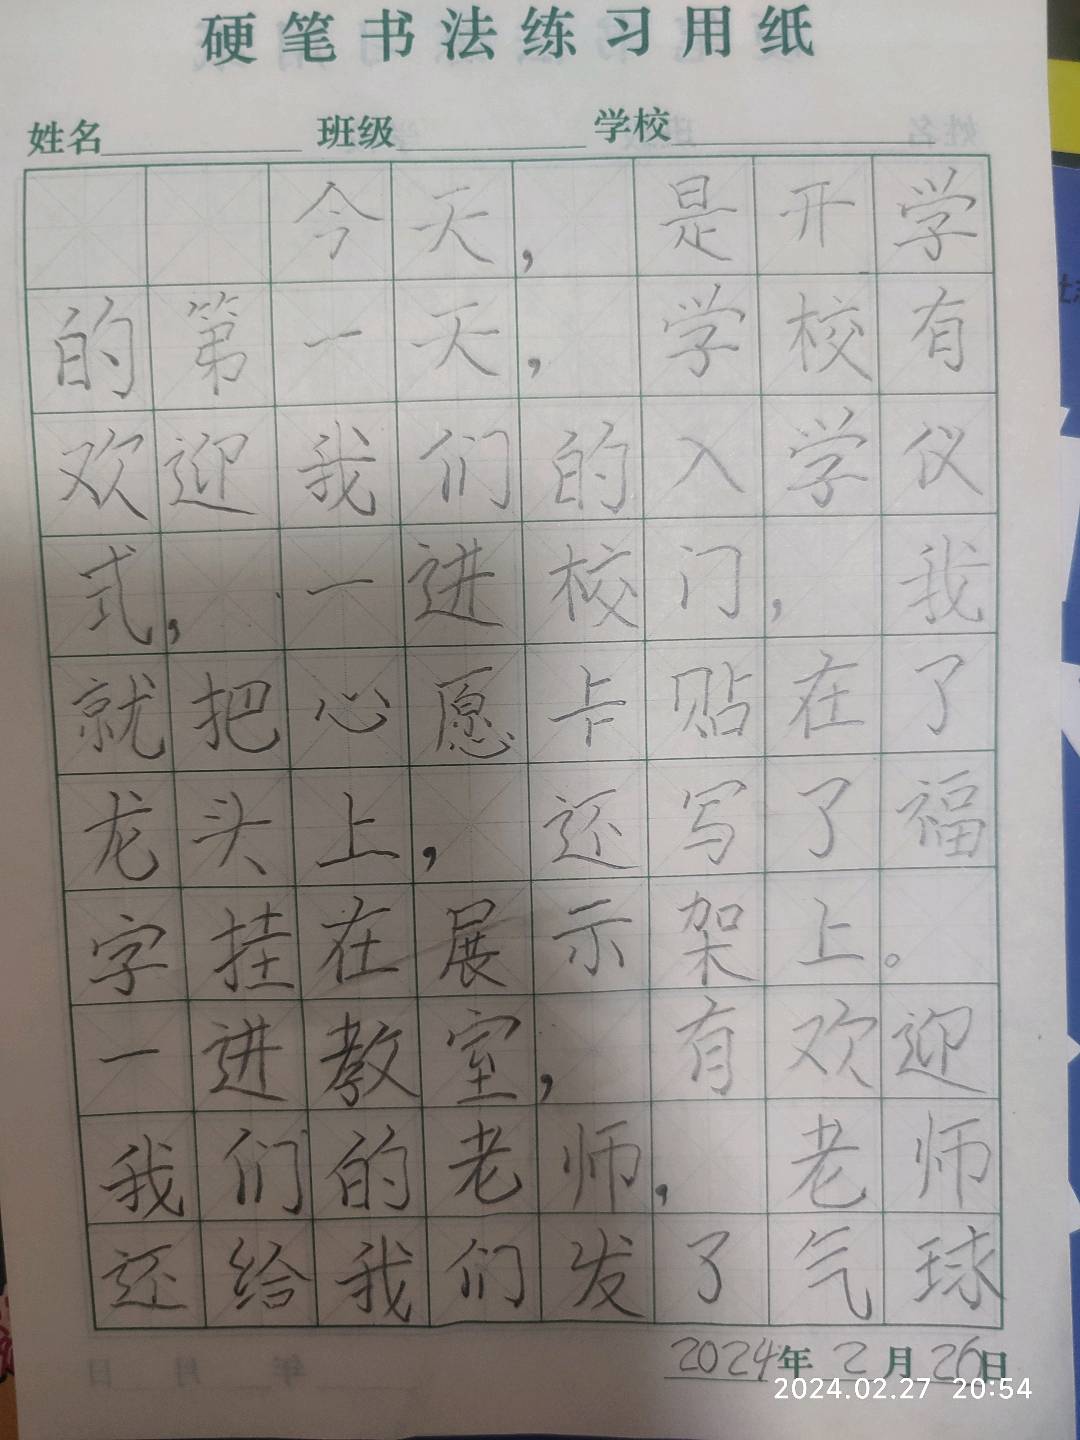 硬笔书法练习用纸
姓名 班级 学校
今天,是开学
的第一天,学校有
欢迎我们的入学仪
式,一进校门,我
就把心愿卡贴在了
龙头上,还写了福
字挂在展示架上。
一进教室,有欢迎
我们的老师,老师
还给我们发了气球
2024年2月26日
2024.02.27 20:54